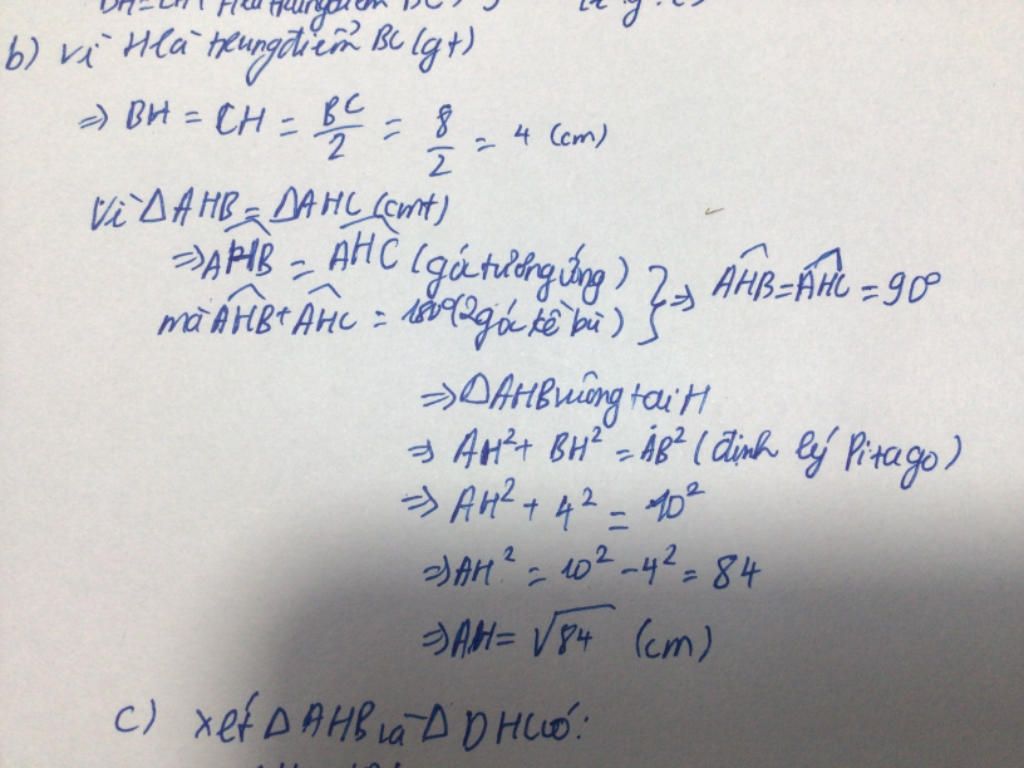 b) Vì H là trung điểm BC (gt)
⇒ BH = CH = BC/2 = 8/2 = 4 (cm)
Vì △AHB = △AHC (cmt)
⇒ AHB = AHC (góc tương ứng)
mà AHB + AHC = 180° (2 góc kề bù) } ⇒ AHB = AHC = 90°
⇒ △AHB vuông tại H
⇒ AH² + BH² = AB² (định lý Pitago)
⇒ AH² + 4² = 10²
⇒ AH² = 10² - 4² = 84
⇒ AH = √84 (cm)
c) xét △AHB và △DHC có: